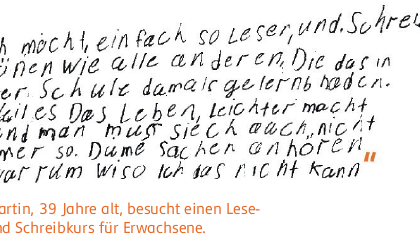 ch möcht, einfach so Leser, und. Schrei
önen wie alle anderen. Die das in
er. Schule damals gelernb haden.
Vail es Das Leben, Leichter macht
und man mus siech auch, nicht
mer so. Dume Sachen anhören
warrum wiso ich das nicht kann"
artin, 39 Jahre alt, besucht einen Lese-
nd Schreibkurs für Erwachsene.